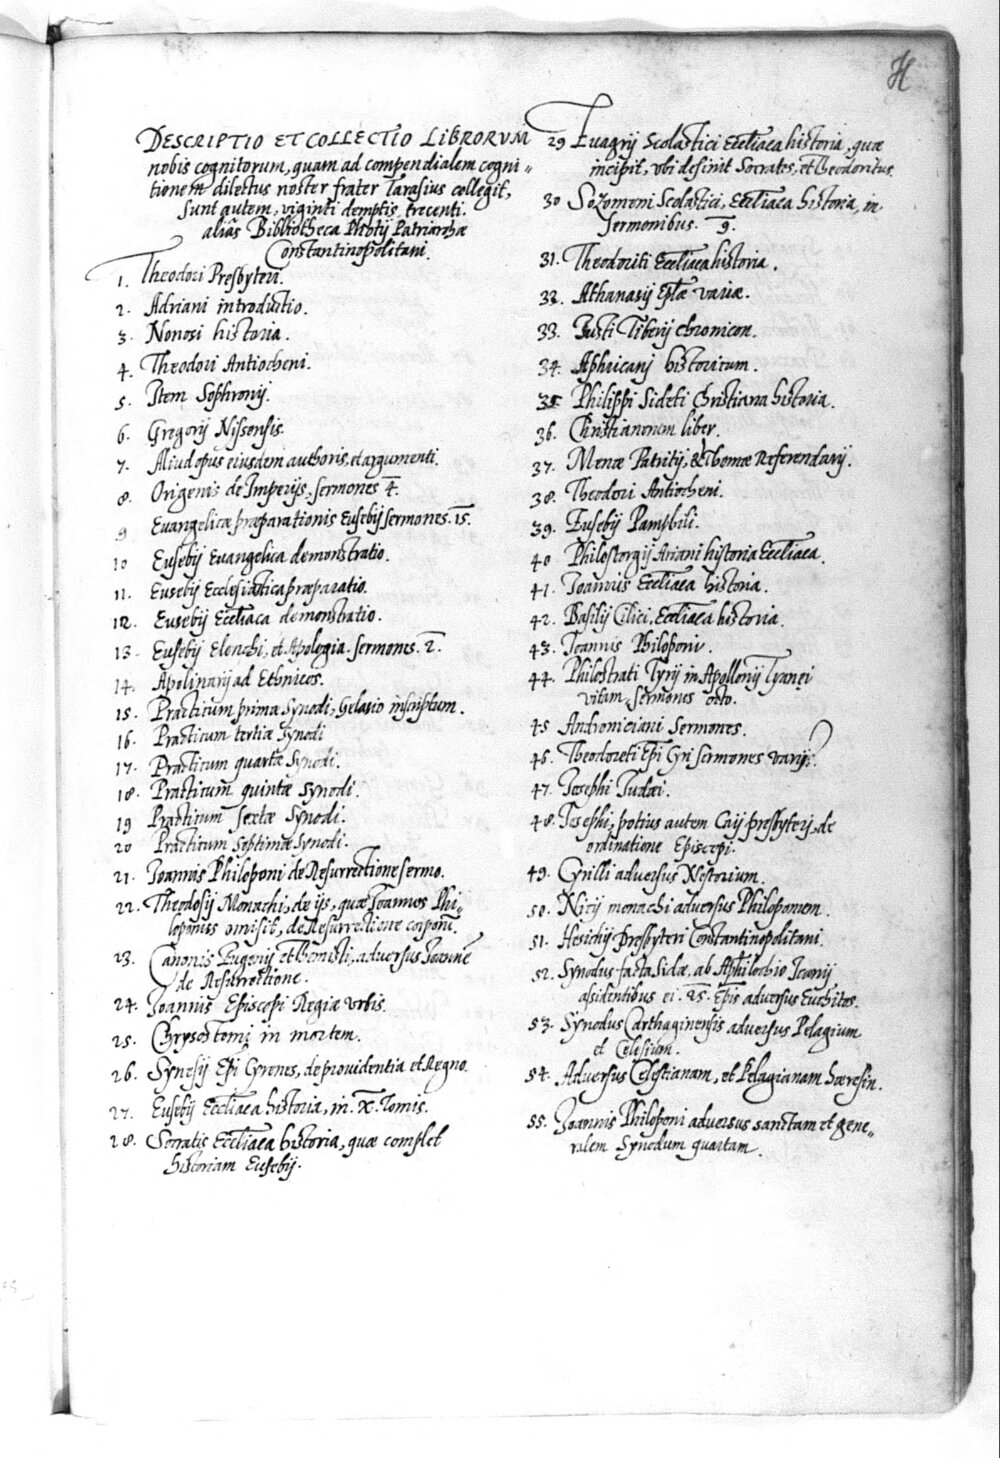 H
DESCRIPTIO ET COLLECTIO LIBRORVM
nobis cognitorum, quam ad compendialem cogni„
tionem dilectus noster frater Tarasius collegit,
Sunt autem, viginti demptis, trecenti.
aliàs Bibliotheca Photij Patriarchæ
Constantinopolitani.
1. Theodori Presbyteri.
2. Adriani introductio.
3. Nonosi historia.
4. Theodori Antiocheni.
5. Item Sophronij.
6. Gregorij Nissensis.
7. Aliud opus eiusdem authoris, et argumenti.
8. Origenis de Imperijs, sermones 4.
9 Euangelicæ præparationis Eusebij sermones. 15.
10 Eusebij Euangelica demonstratio.
11. Eusebij Ecclesiastica præparatio.
12. Eusebij Eccl̄iaca demonstratio.
13. Eusebij Elenchi, et Apologia. sermones. 2.
14. Apolinarij ad Ethnicos.
15. Practicum primæ Synodi, Gelasio inscriptum.
16. Practicum tertiæ Synodi
17. Practicum quartæ Synodi.
18. Practicum quintæ Synodi.
19 Practicum sextæ Synodi.
20 Practicum Septimæ Synodi.
21. Joannis Philoponi de Resurrectione sermo.
22. Theodosij Monachi, de ijs, quæ Joannes Phi„
loponus omisit, de Resurrectione corporū.
23. Canonis Eugenij et Themisti, adversus Joannē
de Resurrectione.
24. Joannis Episcopi Regiæ vrbis.
25. Chrysostomi in mortem.
26. Synesij Ep̄i Cyrenes, de providentia et Regno.
27. Eusebij Eccl̄iaca historia, in. X. Tomis.
28. Socratis Eccl̄iaca historia, quæ complet
historiam Eusebij.
29 Euagrij Scolastici Eccl̄iaca historia, quæ
incipit, vbi definit Socrates, et Theodoritus.
30 Sozomeni Scolastici, Eccl̄iaca historia, in
Sermonibus. 9.
31. Theodoriti Eccl̄iaca historia.
32. Athanasij Ep̄læ variæ.
33. Justi Tiberij chronicon.
34. Aphricanj historicum.
35 Philippi Sideti Christiana historia.
36. Christianorum liber.
37. Menæ Patritij, & Thomæ Referendarij.
38. Theodori Antiocheni.
39. Eusebij Pamphili.
40 Philostorgij Ariani historia Eccl̄iaca.
41. Joannis Eccl̄iaca historia.
42. Basilij Cilici, Eccl̄iaca historia.
43. Joannis Philoponi.
44. Philostrati Tyrij in Apollonij Tyanei
vitam, sermones octo.
45 Andronicianj Sermones.
46. Theodoreti Ep̄i Cyri sermones varij.
47. Josephi Judæi.
48. Josephi, potius autem Caij presbyterj, de
ordinatione Episcopi.
49. Cyrilli adversus Nestorium.
50. Nicij monachi adversus Philoponem.
51. Hesichij presbyteri Constantinopolitani.
52. Synodus facta Sidæ, ab Aphilochio Iconij
assidentibus ei. 25. Ep̄is adversus Euchites.
53. Synodus Carthaginensis adversus Pelagium
et Celesium.
54. Adversus Celestianam, et Pelagianam hæresin.
55. Joannis Philoponi adversus sanctam et gene„
ralem Synodum quartam.